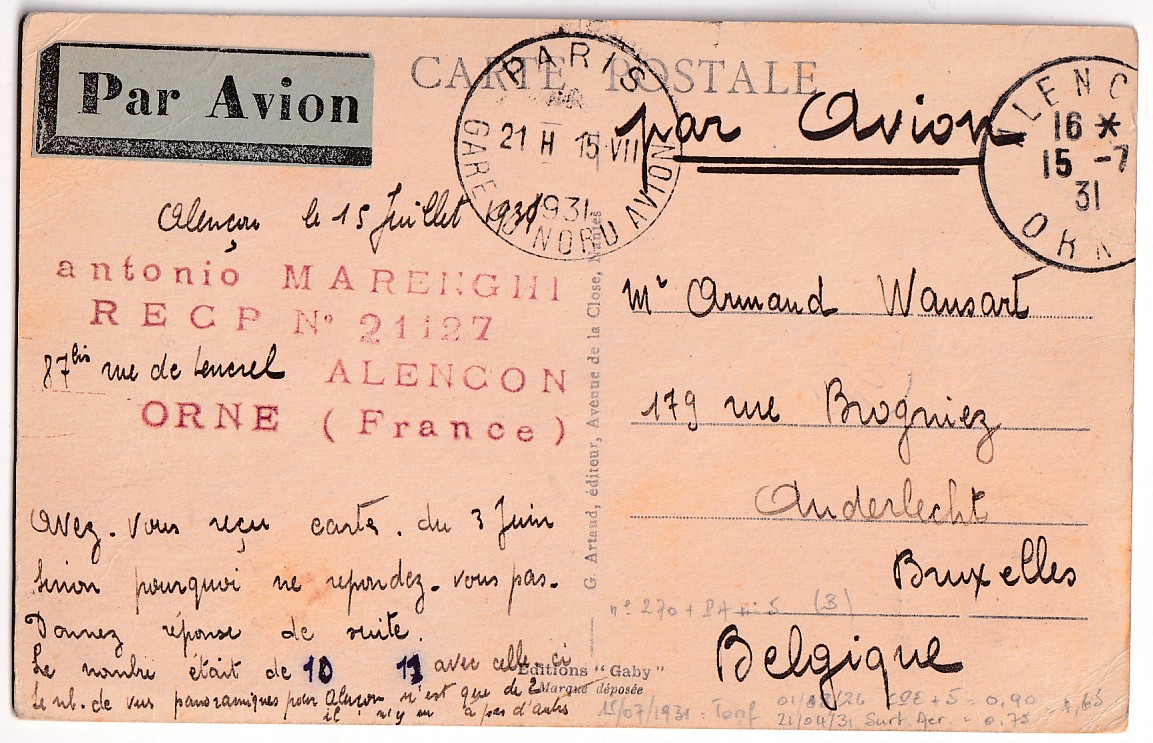 Par Avion
CARTE POSTALE
par Avion
PARIS
21 H 15 VII
1931
GARE DU NORD AVION
ALENC
16 *
15 -7
31
ORN
Alençon le 15 Juillet 1931
antonio MARENGHI
RECP N° 21127
87bis rue de Lencrel ALENCON
ORNE (France)
Avez-vous reçu carte du 3 Juin
Sinon pourquoi ne repondez-vous pas.
Donnez réponse de suite.
Le nombre était de 10 11 avec celle-ci
Le nb. de vus panoramiques pour Alençon n'est que de 2
il n'y en a pas d'autres
G. Artaud, éditeur, Avenue de la Close, Nantes
Editions "Gaby"
Marque déposée
Mr Armand Wansart
179 rue Brogniez
Anderlecht
Bruxelles
Belgique
n° 270 + PA n° 5 (3)
15/07/1931 = Tarif 01/08/26 + 5 = 0,90
21/04/31 Surt. Aer. = 0,75 1,65